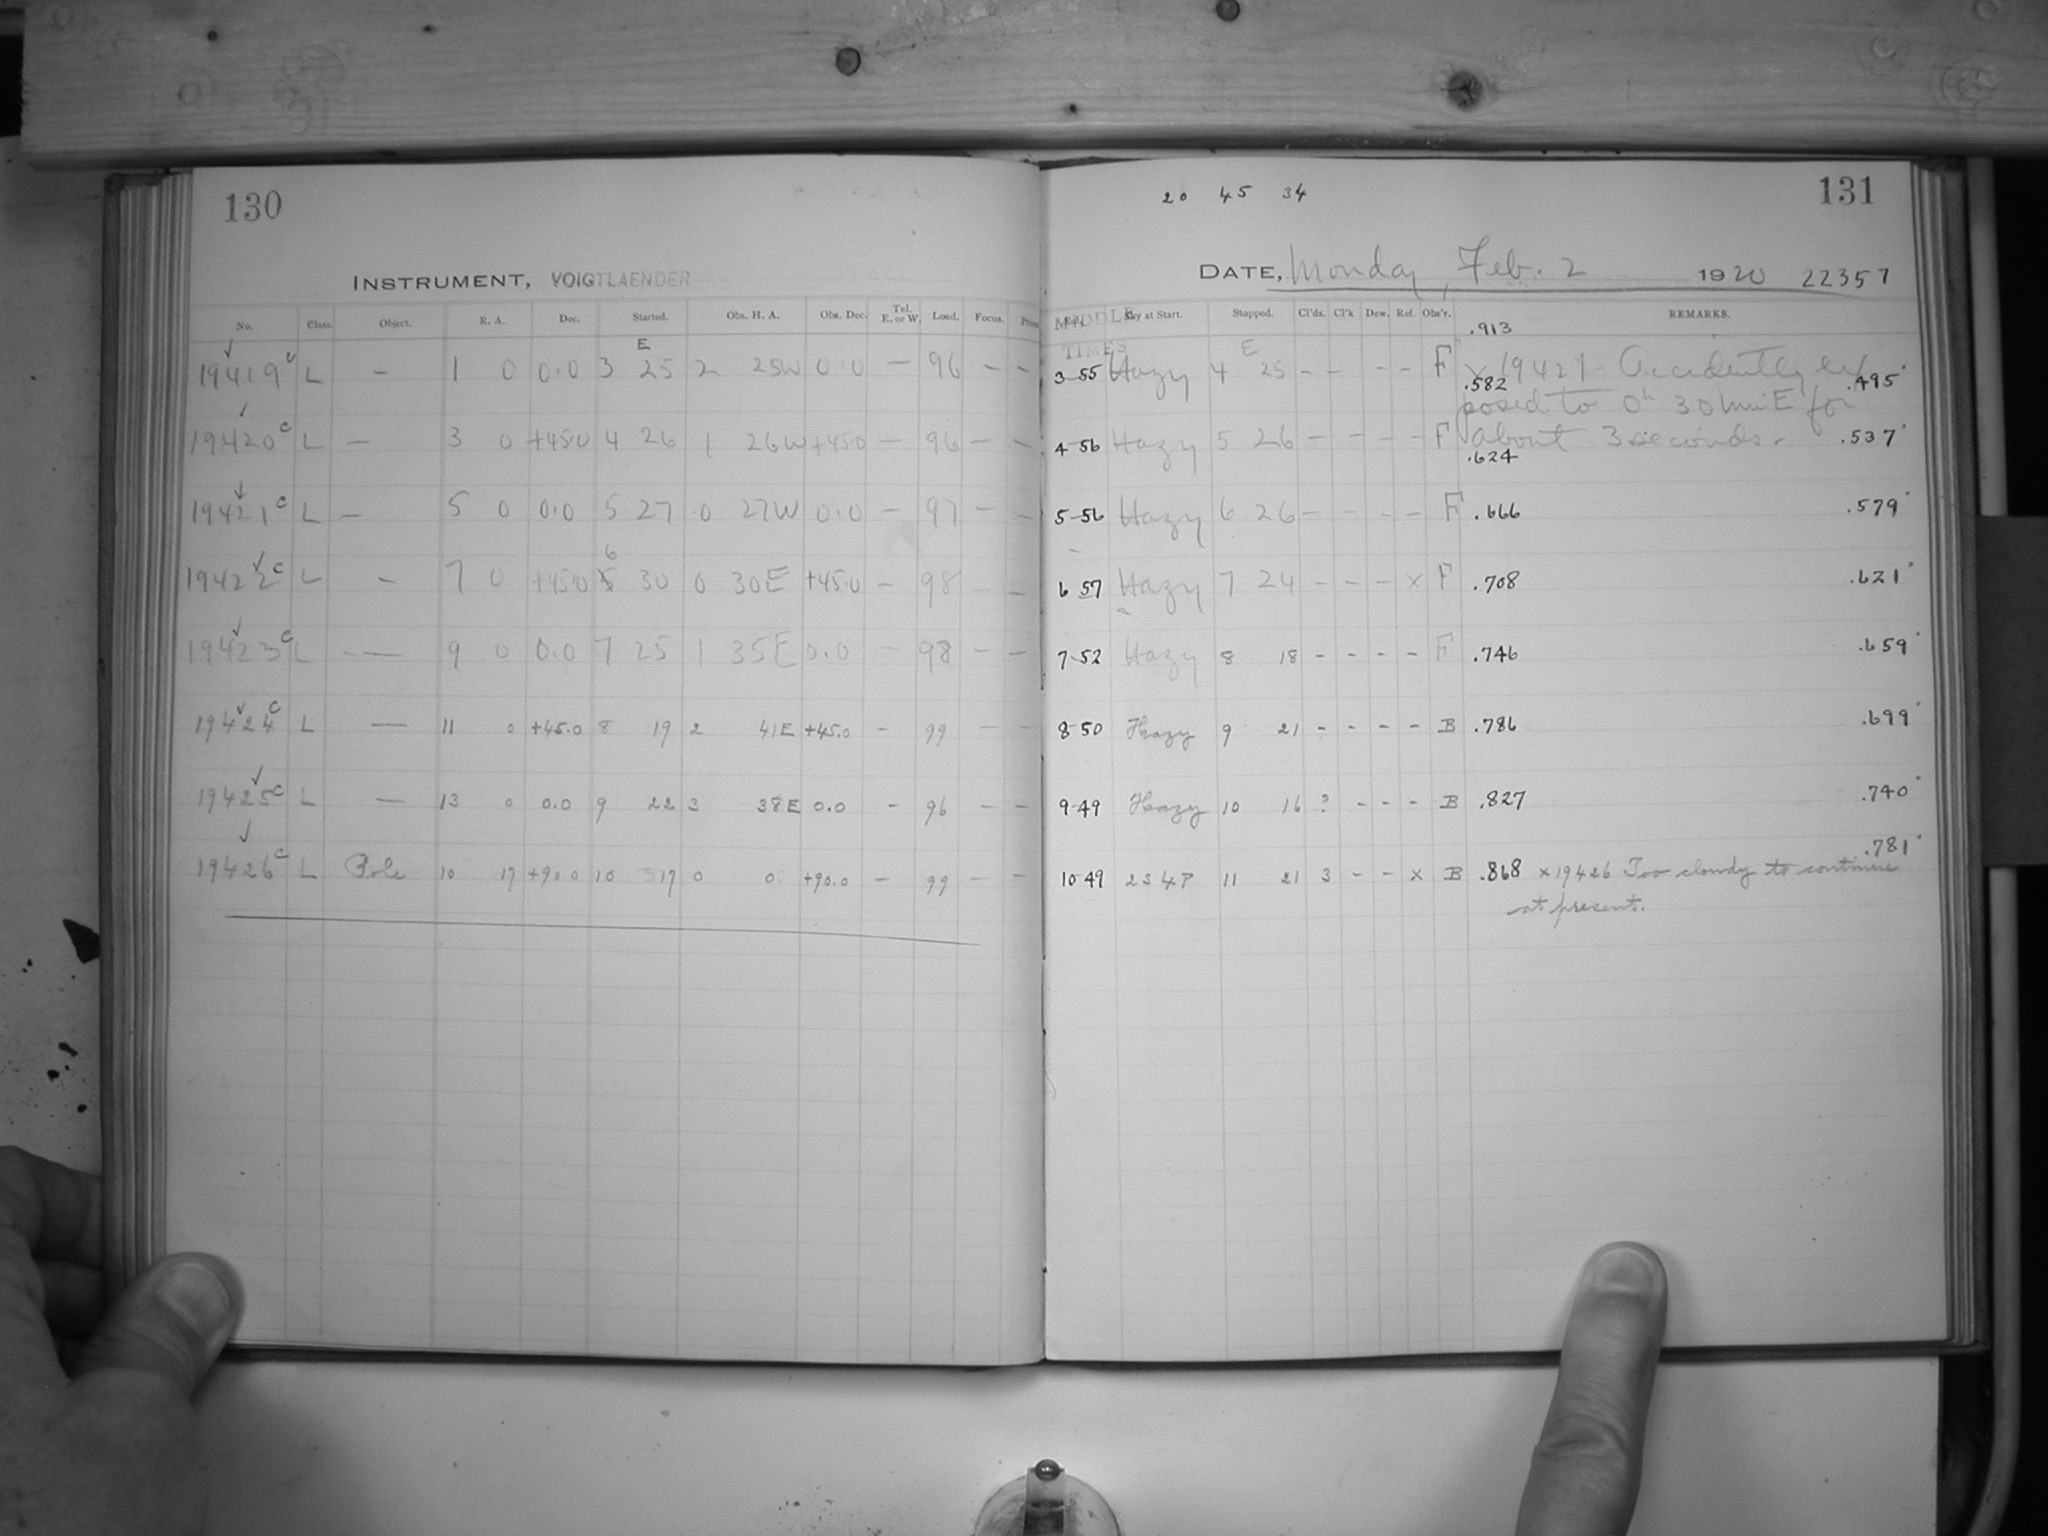 130
INSTRUMENT, VOIGTLAENDER
No. Class. Object. R. A. Dec. Started. Obs. H. A. Obs. Dec. Tel. E. or W. Load. Focus.
E
19419 c L — 1 0 0.0 3 25 2 25W 0.0 — 96 — —
19420 c L — 3 0 +45.0 4 26 1 26W +45.0 — 96 — —
19421 c L — 5 0 0.0 5 27 0 27W 0.0 — 97 — —
6
19422 c L — 7 0 +45.0 5 30 0 30E +45.0 — 98 — —
19423 c L — 9 0 0.0 7 25 1 35E 0.0 — 98 — —
19424 c L — 11 0 +45.0 8 19 2 41E +45.0 — 99 — —
19425 c L — 13 0 0.0 9 22 3 38E 0.0 — 96 — —
19426 c L Pole 10 17 +90.0 10 17 0 0 +90.0 — 99 — —
20 45 34
131
DATE, Monday, Feb. 2 1920 22357
MIDDLE TIMES Sky at Start. Stopped. Cl'ds. Cl'k Dew. Ref. Obs'r. REMARKS.
.913
E
3-55 Hazy 4 25 - - - - F x 19421 Accidently ex
.582 .495
posed to 0h 30min E for
4-56 Hazy 5 26 - - - - F about 3 seconds. .537
.624
5-56 Hazy 6 26 - - - - F .666 .579
6 57 Hazy 7 24 - - - x F .708 .621
7-52 Hazy 8 18 - - - - F .746 .659
8-50 Hazy 9 21 - - - - B .786 .699
9-49 Hazy 10 16 ? - - - B .827 .740
.781
10-49 2S4P 11 21 3 - - x B .868 x 19426 Too cloudy to continue
at present.